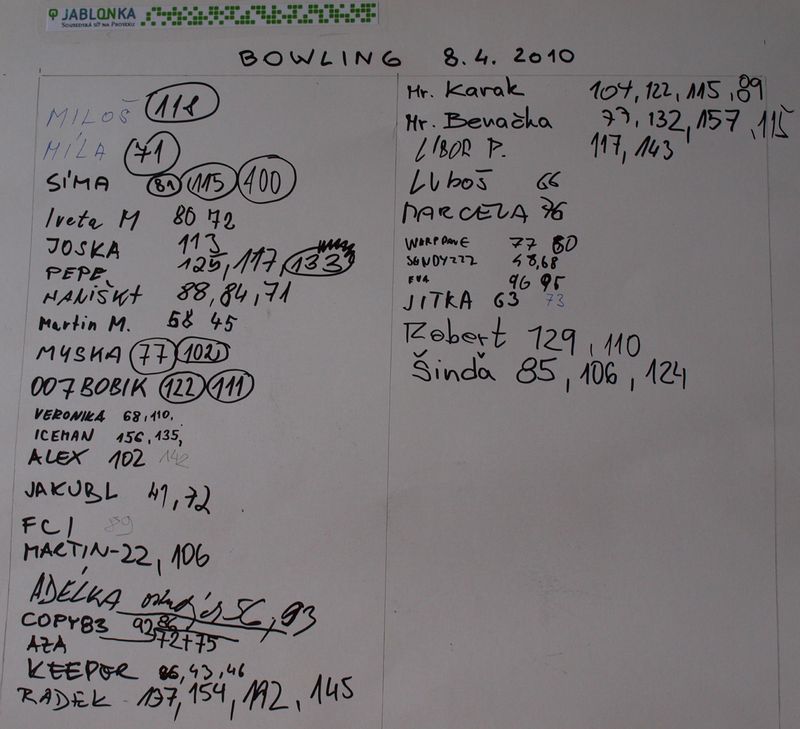 JABLONKA
SOUSEDSKÁ SÍŤ NA PROSEKU
BOWLING 8.4.2010
MILOŠ 118
MÍLA 71
SÍMA 81 115 100
Iveta M 80 72
JOSKA 113
PEPE 125, 117, 133
88, 84, 71
Martin M. 58 45
MYSKA 77 102
007BOBIK 122 111
VERONIKA 68, 110,
ICEMAN 156, 135,
ALEX 102 142
JAKUBL 41, 72
FCI 89
MARTIN-22, 106
ADÉLKA 56, 93
COPY83 92 86
AZA 72+75
KEEPER 86, 43, 46
RADEK 137, 154, 192, 145
Mr. Karak 104, 122, 115, 89
Mr. Benačka 77, 132, 157, 115
LIBOR P. 117, 143
LUBOŠ 66
MARCELA 76
77 80
SENDYZZZ 48, 68
EVA 96 95
JITKA 63 73
Robert 129, 110
Šinďa 85, 106, 124